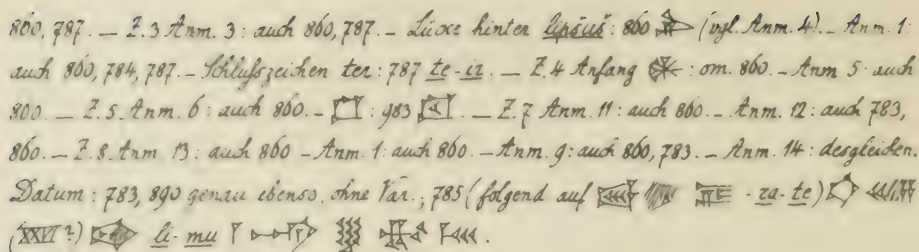 860, 787. — Z. 3 Anm. 3: auch 860, 787. — Lücke hinter lipšuš: 860 (vgl. Anm. 4). — Anm. 1:
auch 860, 784, 787. — Schlußzeichen ter: 787 te-ir. — Z. 4 Anfang: om. 860. — Anm 5: auch
800. — Z. 5. Anm. 6: auch 860. — : 983 . — Z. 7 Anm. 11: auch 860. — Anm. 12: auch 783,
860. — Z. 8. Anm 13: auch 860 — Anm. 1: auch 860. — Anm. 9: auch 860, 783. — Anm. 14: desgleichen.
Datum: 783, 890 genau ebenso, ohne Var.; 785 (folgend auf -za-te)
(XXVI?) li-mu